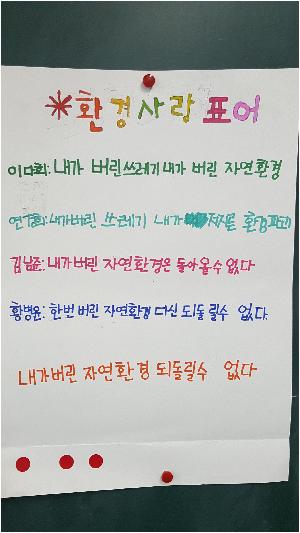 *환경사랑 표어
내가 버린 쓰레기 내가 버린 자연환경
내가버린 쓰레기 내가 저지른 환경파괴
김남준: 내가 버린 자연환경은 돌아올 수 없다
황병윤: 한번 버린 자연환경 다신 되돌릴수 없다.
내가버린 자연환경 되돌릴수 없다